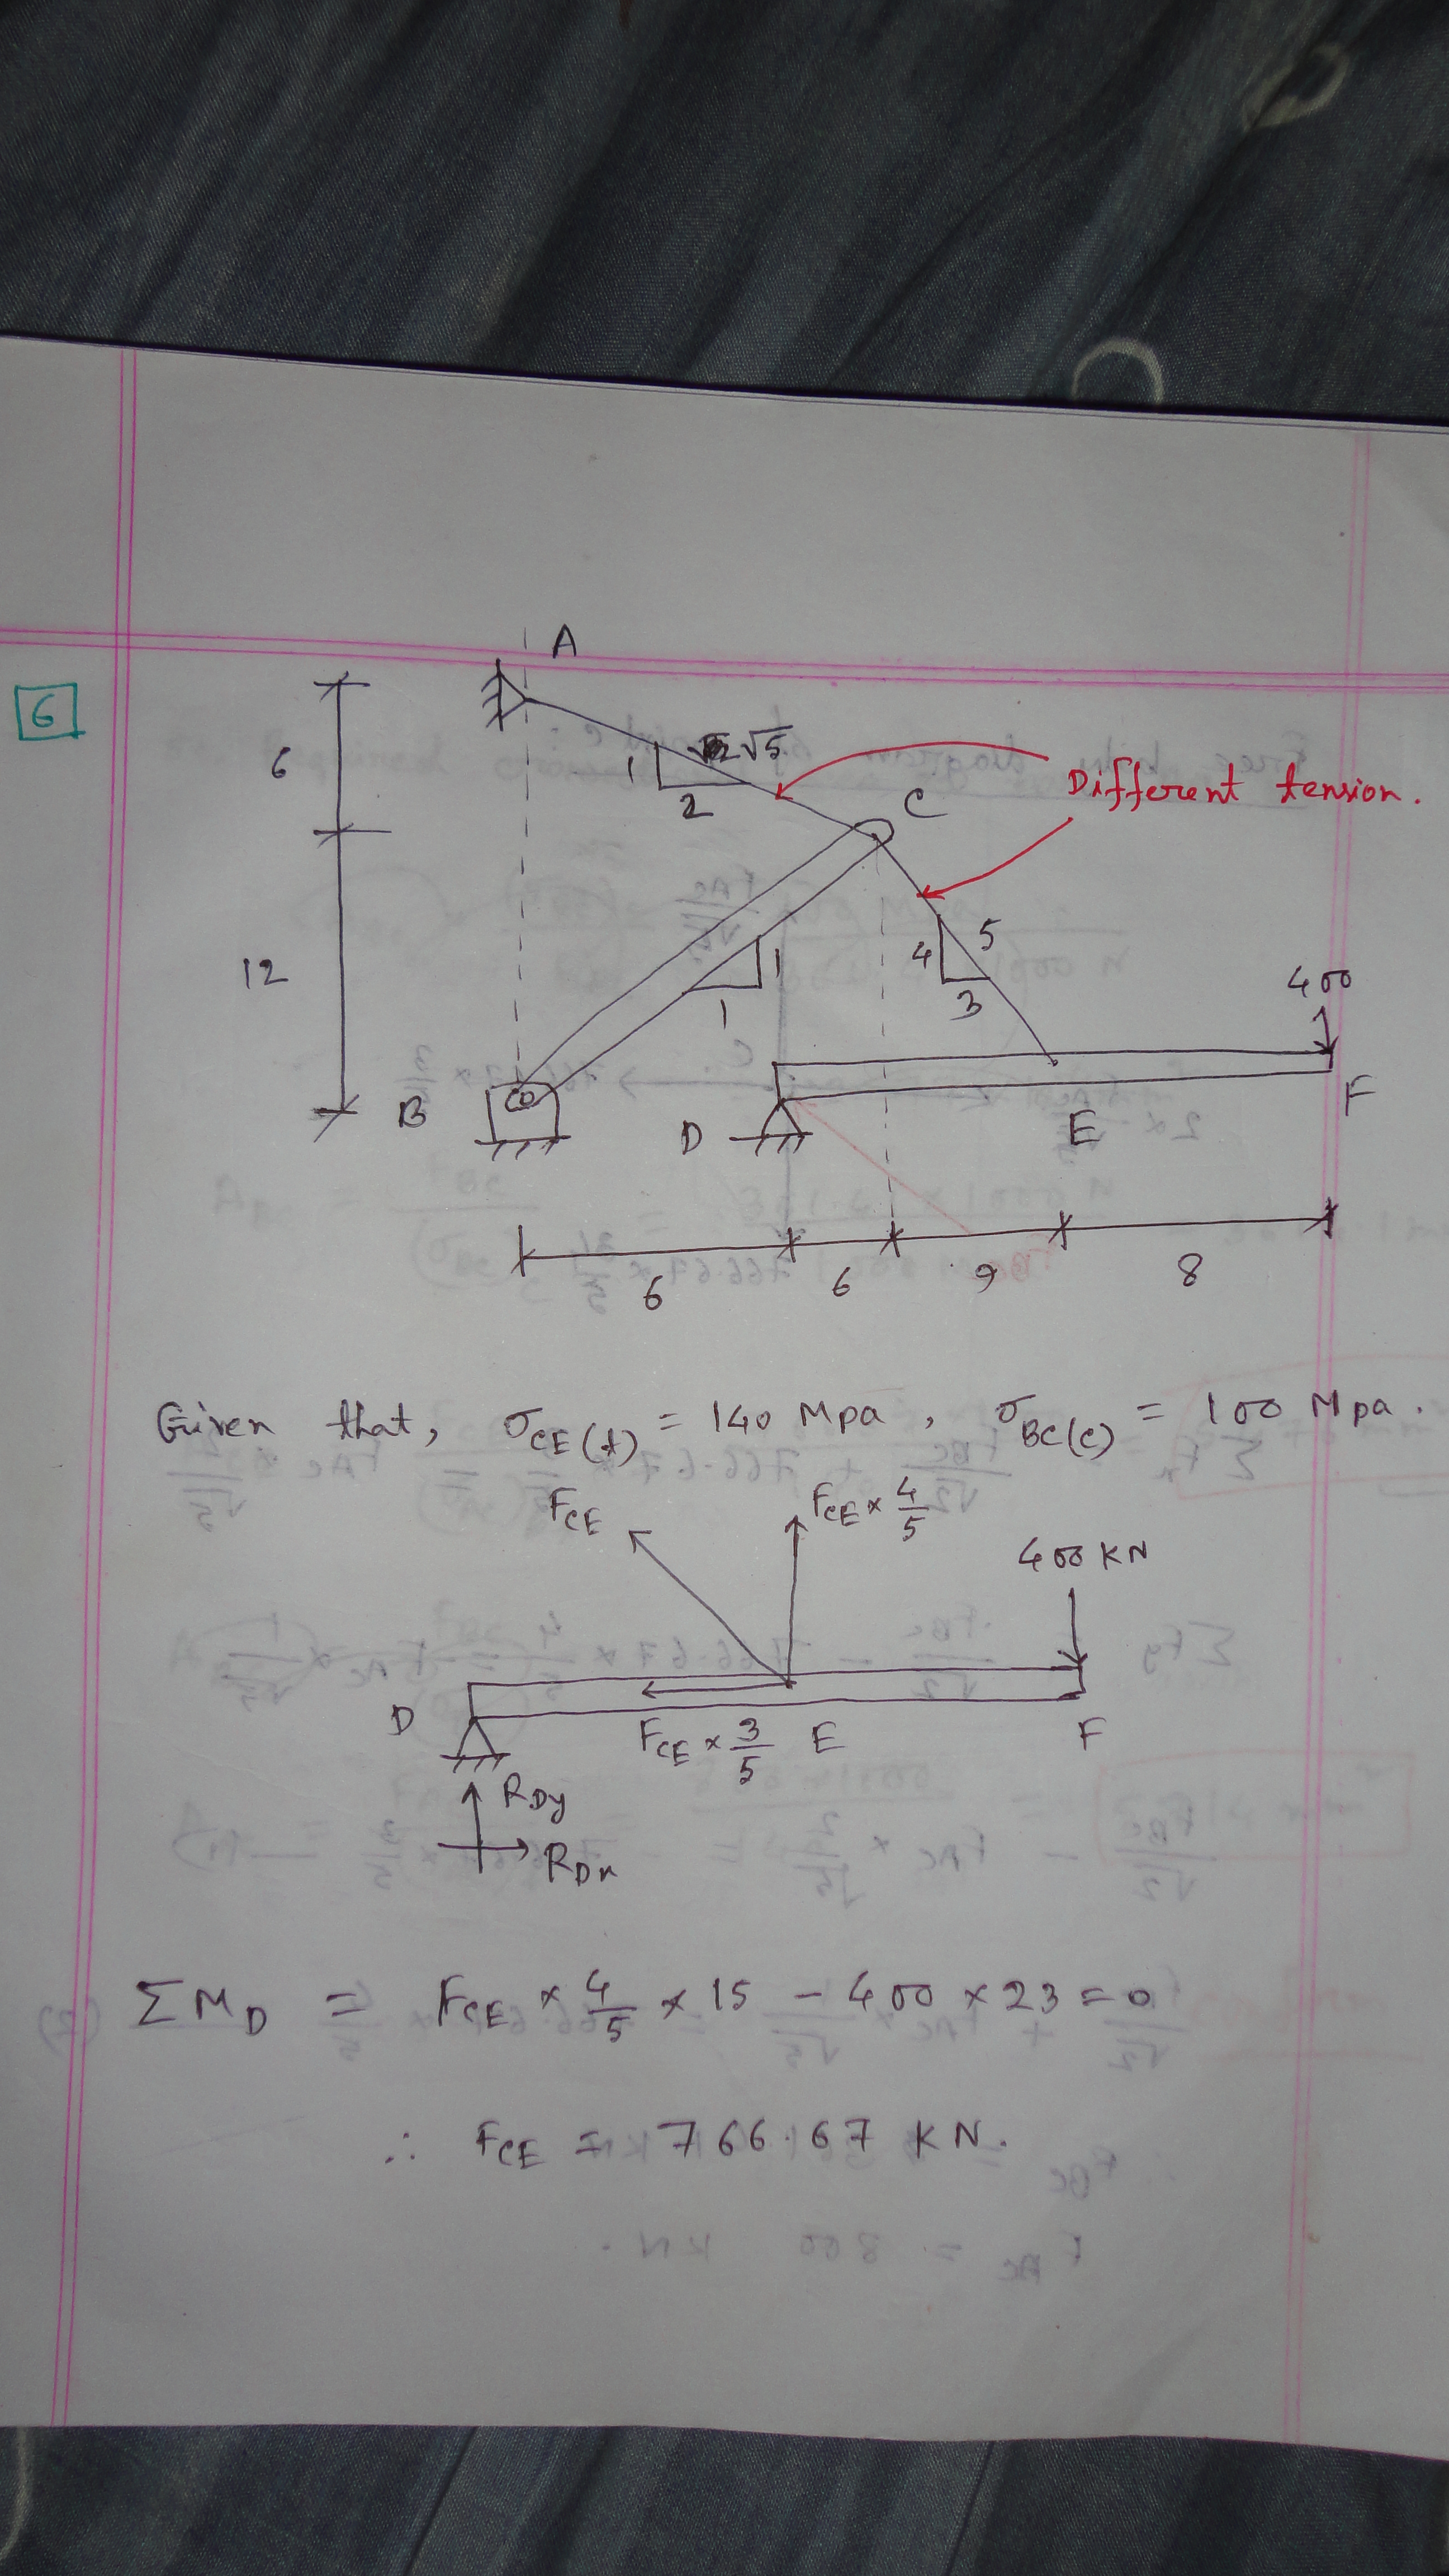 6
A
6
1
2
√5
C
Different tension.
12
1
1
4
5
3
400
B
D
E
F
6
6
9
8
Given that, σCE(t) = 140 Mpa, σBC(c) = 100 Mpa.
FCE
FCE × 4/5
400 KN
D
FCE × 3/5
E
F
RDy
RDx
ΣMD = FCE × 4/5 × 15 - 400 × 23 = 0
∴ FCE = 766.67 KN.